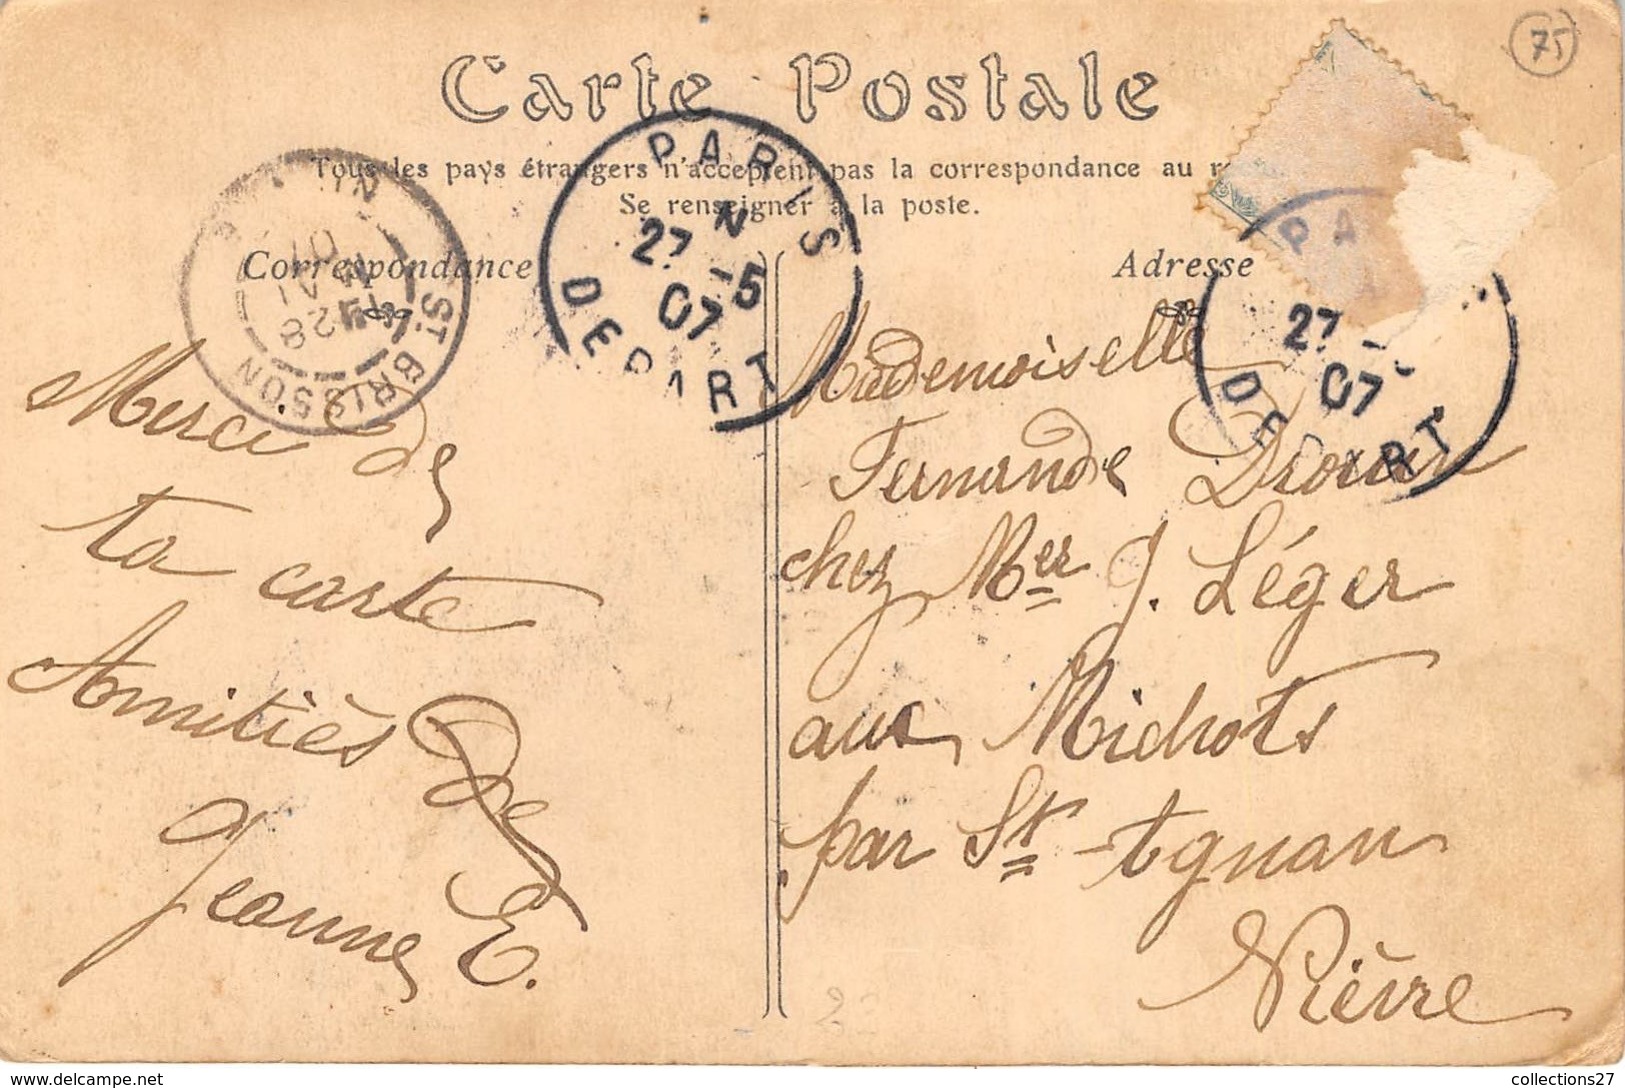 75
Carte Postale
Tous les pays étrangers n'acceptent pas la correspondance au
Se renseigner à la poste.
Correspondance
Adresse
PARIS
N
27 -5
07
DEPART
28
MAI
07
ST BRISSON
PA
27 -
07
DEPART
Merci de
ta carte
Amitiès de
Jeanne E.
Mademoiselle
Fernande Drouin
chez Mer J. Léger
aux Michots
par St-Agnan
Nièvre
collections27